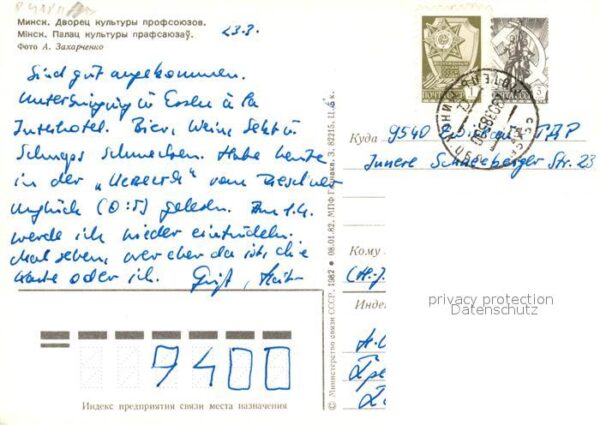 Минск. Дворец культуры профсоюзов.
Мінск. Палац культуры прафсаюзаў.
Фото А. Захарченко
23.3.
Sind gut angekommen.
Unterbringung u Essen à la
Interhotel. Bier, Wein, Sekt u
Schnaps schmecken. Habe heute
in der „Известия" vom Dresdner
Unglück (0:5) gelesen. Am 1.4.
werde ich wieder eintrudeln.
Mal sehen, wer eher da ist, die
Karte oder ich. Gruß,
9400
Индекс предприятия связи места назначения
© Министерство связи СССР, 1982 • 08.01.82. МПФ Гознака. З. 82215. Ц. 5 к.
1
3
Куда 9540 ГДР
Innere Schneeberger Str. 23
Кому
(H.-J.
Инде
privacy protection
Datenschutz